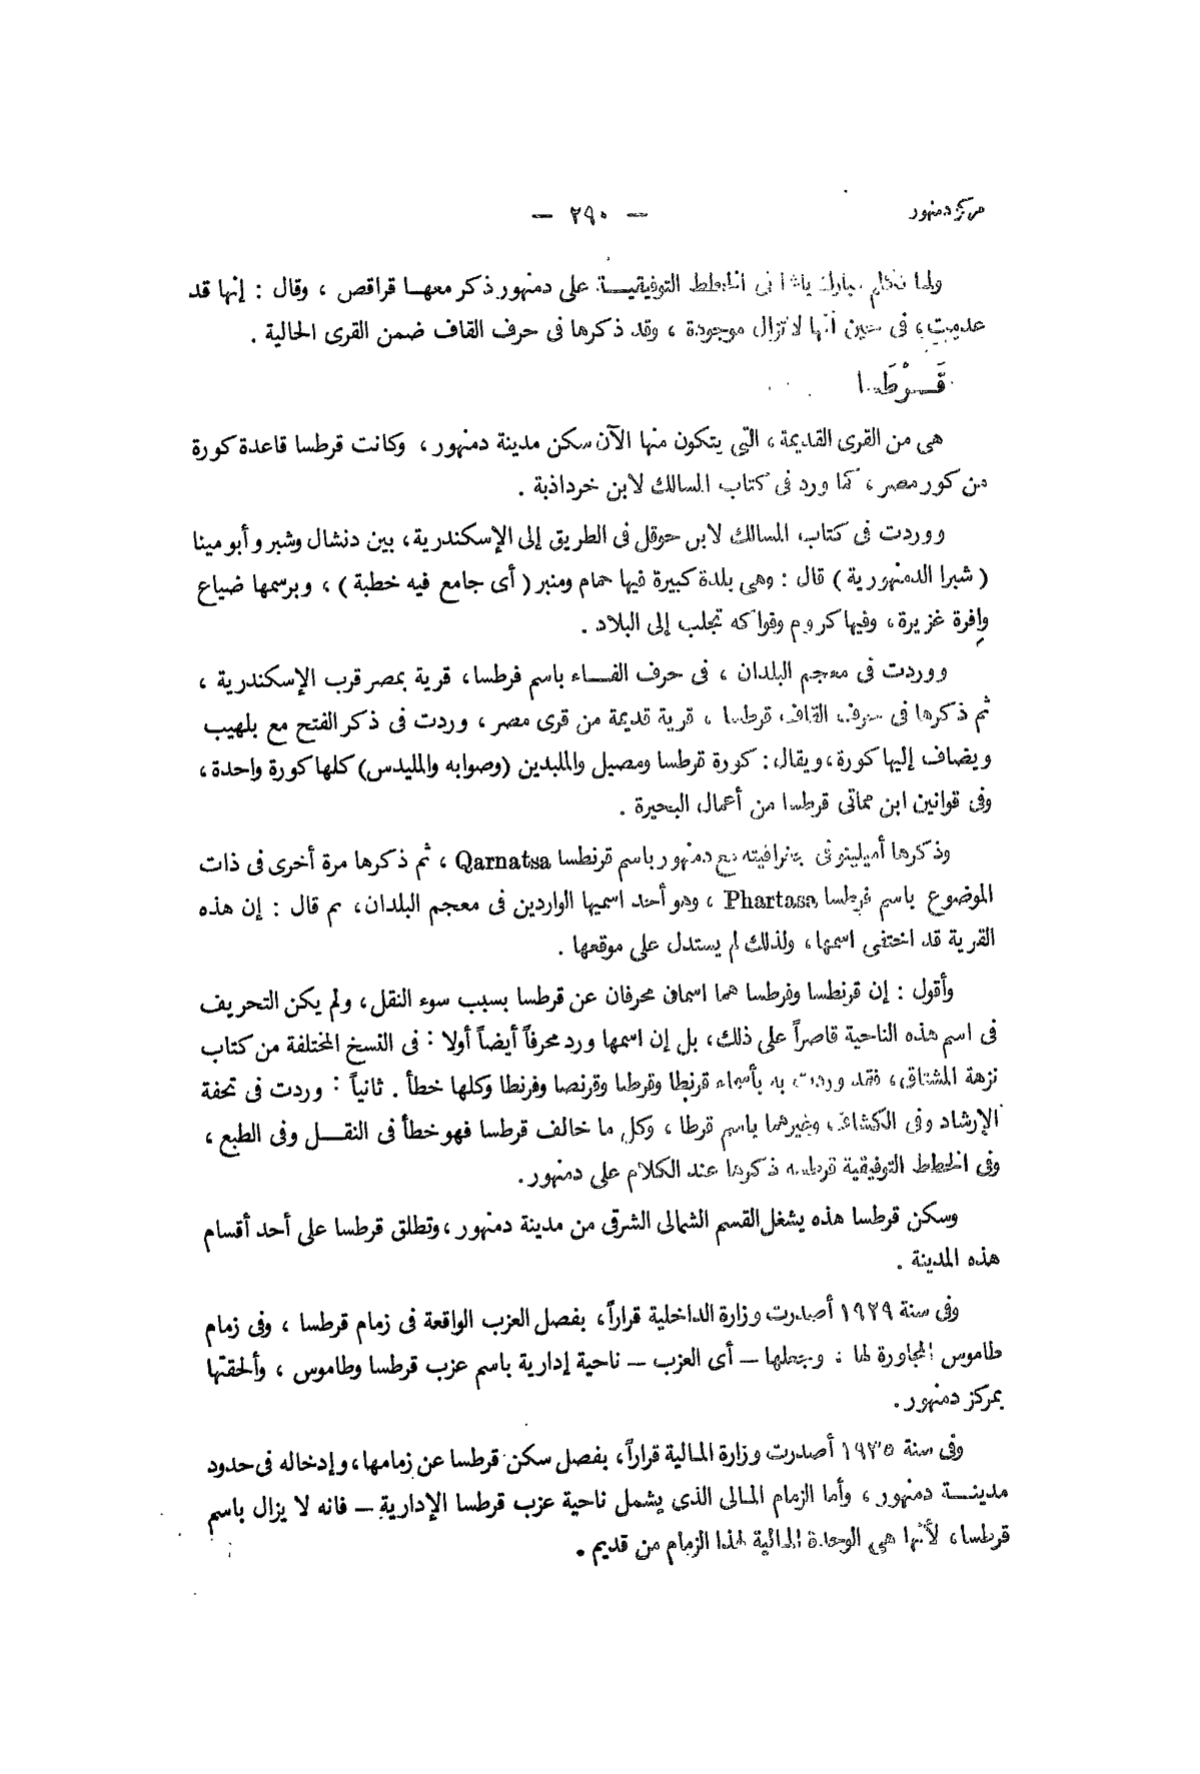 مركز دمنهور
— ٢٩٠ —
ولما تكلم مبارك باشا فى الخطط التوفيقيـــة على دمنهور ذكر معهـا قراقص ، وقال : إنها قد
عدمت، فى حين أنها لا تزال موجودة ، وقد ذكرها فى حرف القاف ضمن القرى الحالية .
قَـــرْطَسا
هى من القرى القديمة، التى يتكون منها الآن سكن مدينة دمنهور ، وكانت قرطسا قاعدة كورة
من كور مصر ، كما ورد فى كتاب المسالك لابن خرداذبة .
ووردت فى كتاب المسالك لابن حوقل فى الطريق إلى الإسكندرية، بين دنشال وشبر وأبو مينا
( شبرا الدمنهورية ) قال : وهى بلدة كبيرة فيها حمام ومنبر ( أى جامع فيه خطبة ) ، وبرسمها ضياع
وافرة غزيرة، وفيها كروم وفواكه تجلب إلى البلاد .
ووردت فى معجم البلدان ، فى حرف الفـــاء باسم فرطسا، قرية بمصر قرب الإسكندرية ،
ثم ذكرها فى حرف القاف قرطسا ، قرية قديمة من قرى مصر ، وردت فى ذكر الفتح مع بلهيب
ويضاف إليها كورة، ويقال : كورة قرطسا ومصيل والملبدين (وصوابه والمليدس) كلها كورة واحدة ،
وفى قوانين ابن مماتى قرطسا من أعمال البحيرة .
وذكرها أميلينو فى جغرافيته مع دمنهور باسم قرنطسا Qarnatsa ، ثم ذكرها مرة أخرى فى ذات
الموضوع باسم فرطسا Phartasa ، وهو أحد اسميها الواردين فى معجم البلدان، ثم قال : إن هذه
القرية قد اختفى اسمها، ولذلك لم يستدل على موقعها .
وأقول : إن قرنطسا وفرطسا هما اسمان محرفان عن قرطسا بسبب سوء النقل، ولم يكن التحريف
فى اسم هذه الناحية قاصراً على ذلك، بل إن اسمها ورد محرفاً أيضاً أولا : فى النسخ المختلفة من كتاب
نزهة المشتاق، فقد وردت به بأسماء قرنطا وقرطا وقرنصا وفرنطا وكلها خطأ . ثانياً : وردت فى تحفة
الإرشاد وفى الكشاف وغيرهما باسم قرطا ، وكل ما خالف قرطسا فهو خطأ فى النقـــل وفى الطبع ،
وفى الخطط التوفيقية قرطسه ذكرها عند الكلام على دمنهور .
وسكن قرطسا هذه يشغل القسم الشمالى الشرقى من مدينة دمنهور ، وتطلق قرطسا على أحد أقسام
هذه المدينة .
وفى سنة ١٩٢٩ أصدرت وزارة الداخلية قراراً، بفصل العزب الواقعة فى زمام قرطسا ، وفى زمام
طاموس المجاورة لها : وجعلها – أى العزب – ناحية إدارية باسم عزب قرطسا وطاموس ، وألحقتها
بمركز دمنهور .
وفى سنة ١٩٣٥ أصدرت وزارة المالية قراراً، بفصل سكن قرطسا عن زمامها، وإدخاله فى حدود
مدينـــة دمنهور ، وأما الزمام المالى الذى يشمل ناحية عزب قرطسا الإدارية – فانه لا يزال باسم
قرطسا، لأنها هى الوحدة المالية لهذا الزمام من قديم .